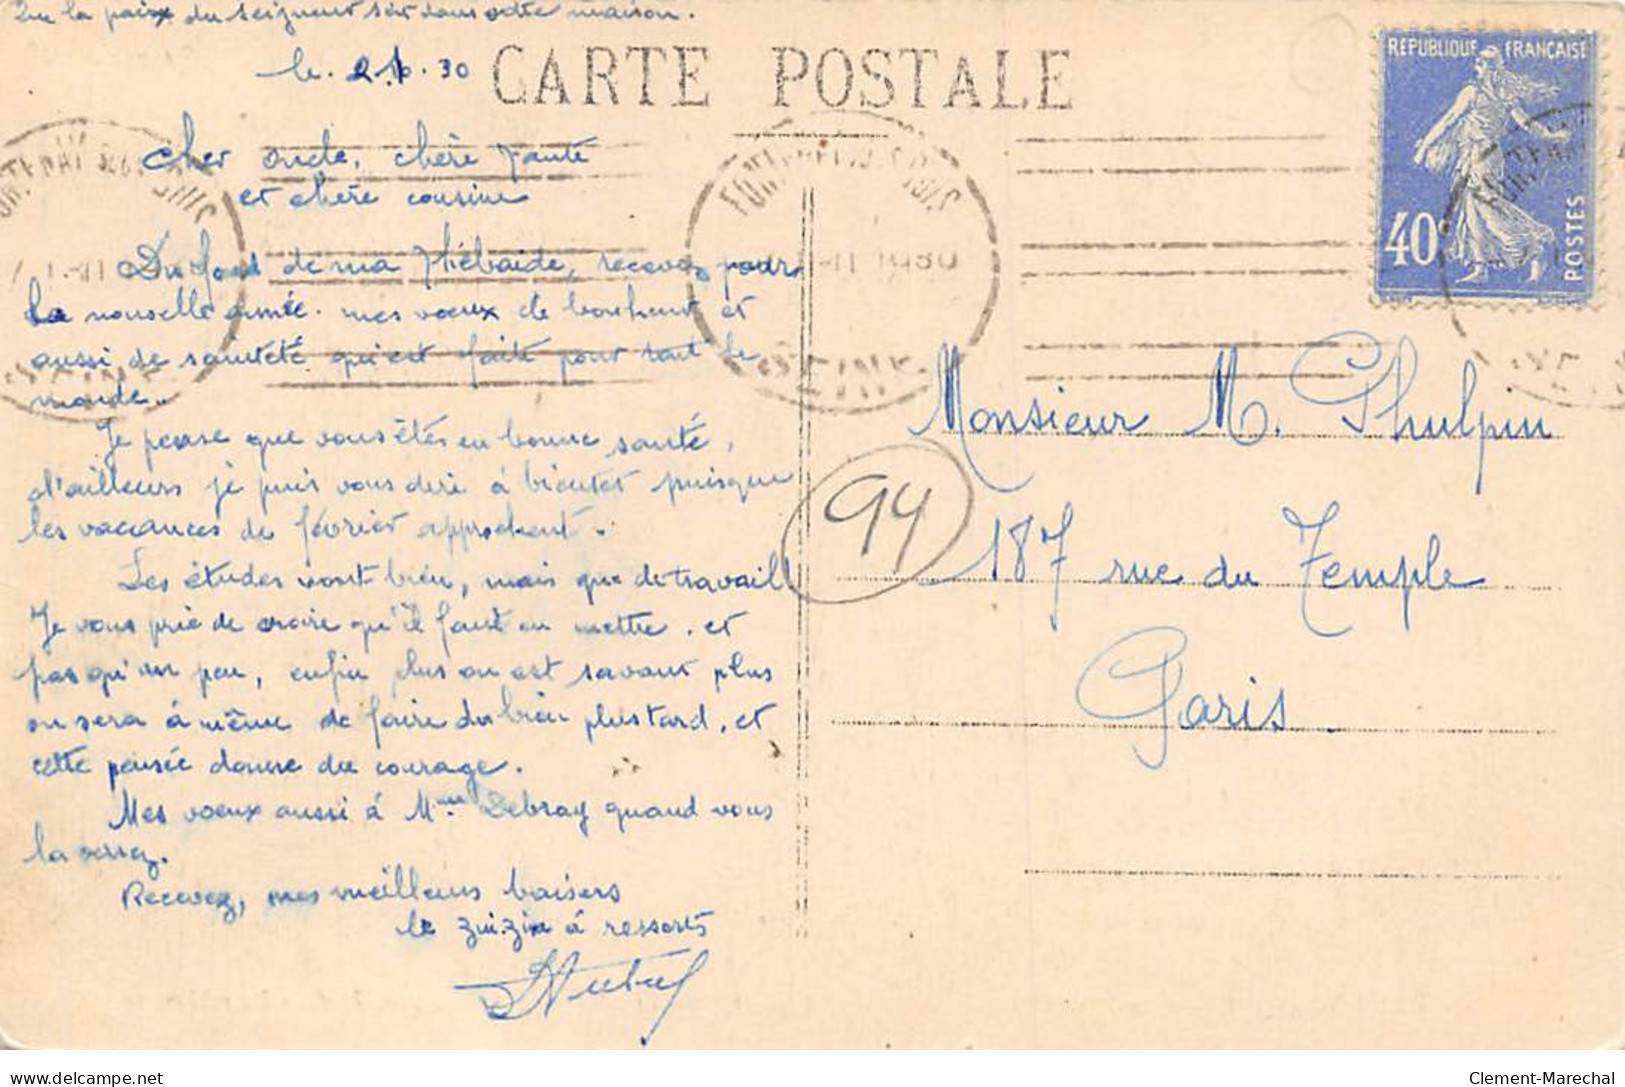 Que la paix du Seigneur soit dans votre maison.
le 2.1.30
CARTE POSTALE
Cher oncle, chère tante
et chère cousine
Du fond de ma Thébaide, recevez pour
la nouvelle année mes voeux de bonheur et
aussi de sainteté qui est faite pour tout le
monde.
Je pense que vous êtes en bonne santé,
d'ailleurs je puis vous dire à bientôt puisque
les vaccances de février approchent.
Les études vont bien, mais que de travail
Je vous prie de croire qu'il faut en mettre, et
pas qu'un peu, enfin plus on est savant plus
on sera à même de faire du bien plus tard, et
cette pensée donne du courage.
Mes voeux aussi à Mme Debray quand vous
la verrez.
Recevez, mes meilleurs baisers
le zinzin à ressorts
REPUBLIQUE FRANÇAISE
40c
POSTES
FONTENAY SOUS BOIS
1930
SEINE
Monsieur M. Thulpin
94
187 rue du Temple
Paris
Clement-Marechal
delcampe.net